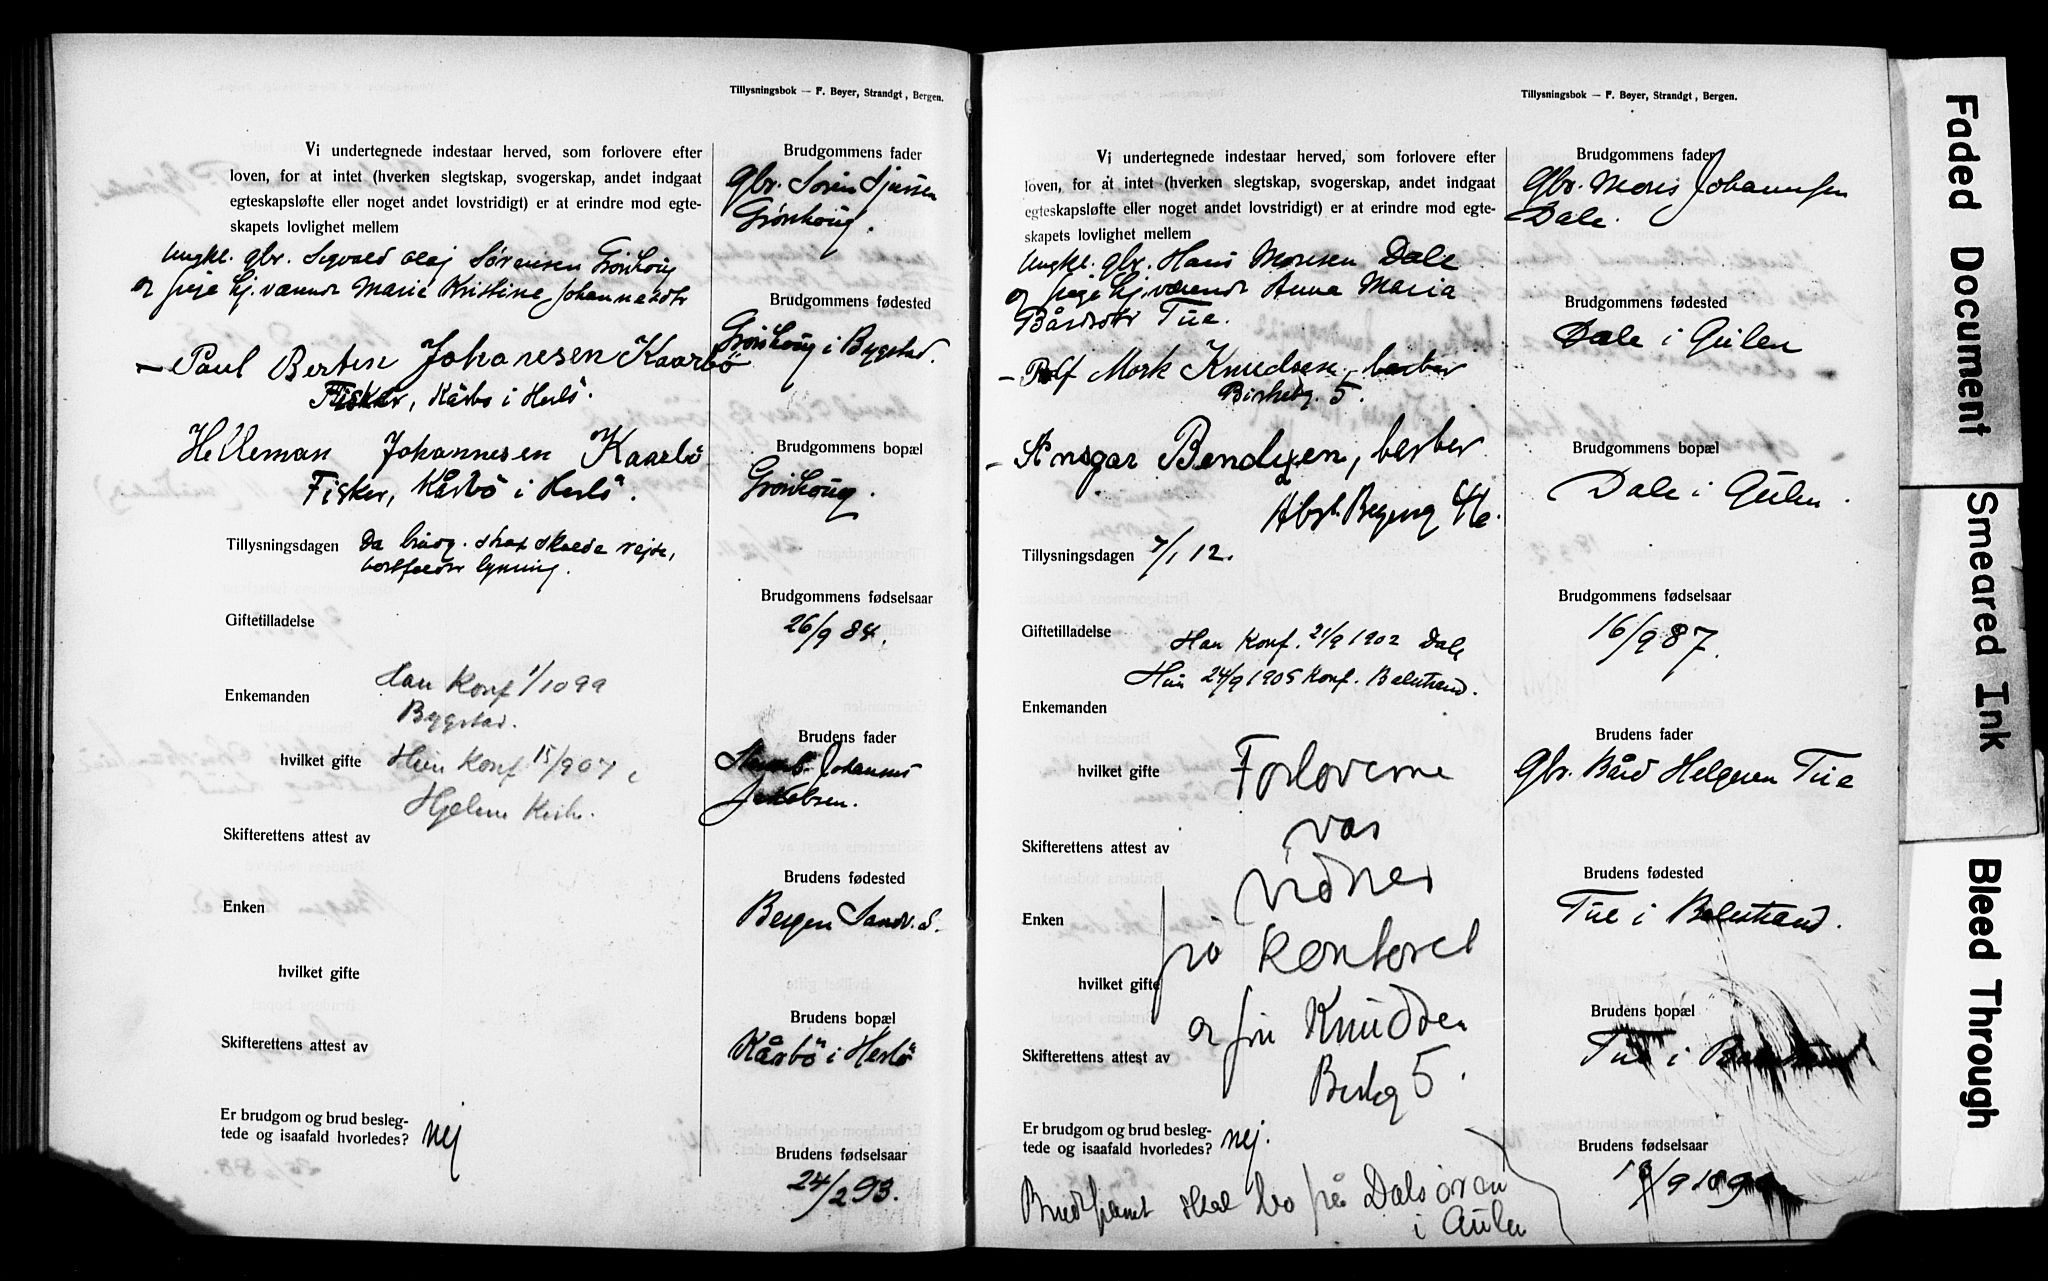 Tillysningsbok — F. Bøyer, Strandgt, Bergen.
Vi undertegnede indestaar herved, som forlovere efter
loven, for at intet (hverken slegtskap, svogerskap, andet indgaat
egteskapsløfte eller noget andet lovstridigt) er at erindre mod egte-
skapets lovlighet mellem
ungkl. gbr. Sigvald Olaj Sørensen Grönhoug
og pige hj.værende Marie Kristine Johannesdtr
— Paul Berten Johanesen Kaarbö
Fisker, Kårbö i Herlö.
Helleman Johannesen Kaarbö
Fisker, Kårbö i Herlö.
Tillysningsdagen Da brudg. strax skulde rejse,
bortfalder lysning.
Giftetilladelse
Han Konf 1/10 99
Enkemanden
Bygstad.
hvilket gifte Hun Konf 15/9 07 i
Hjelme Kirke.
Skifterettens attest av
Enken
hvilket gifte
Skifterettens attest av
Er brudgom og brud besleg-
tede og isaafald hvorledes? nej
Brudgommens fader
Gbr. Sören
Grönhoug.
Brudgommens fødested
Grönhoug i Bygstad.
Brudgommens bopæl
Grönhoug.
Brudgommens fødselsaar
26/9 84.
Brudens fader
Johannes
Jakobsen.
Brudens fødested
Bergen Sandv. s.
Brudens bopæl
Kårbö i Herlö
Brudens fødselsaar
24/2 93.
Tillysningsbok — F. Bøyer, Strandgt, Bergen.
Vi undertegnede indestaar herved, som forlovere efter
loven, for at intet (hverken slegtskap, svogerskap, andet indgaat
egteskapsløfte eller noget andet lovstridigt) er at erindre mod egte-
skapets lovlighet mellem
ungkl. gbr. Hans Monsen Dale
og pige hj.værende Anna Maria
Bårdsdtr Tue.
— Rolf Mork Knudsen, barber
Birkebg. 5.
— Ansgar Bendixen, barber
44c.
Tillysningsdagen 7/1 12.
Giftetilladelse Han Konf. 21/9 1902 Dale
Hun 24/9 1905 Konf. Balestrand.
Enkemanden
hvilket gifte
Forloverne
var
Skifterettens attest av
vidner
Enken
på kontoret
hvilket gifte
og fru Knudsen
Skifterettens attest av
5.
Er brudgom og brud besleg-
tede og isaafald hvorledes? nej.
Brudeparret skal bo på Dalsören
i Gulen
Brudgommens fader
Gbr. Mons Johannesen
Dale.
Brudgommens fødested
Dale i Gulen
Brudgommens bopæl
Dale i Gulen.
Brudgommens fødselsaar
16/9 87.
Brudens fader
Gbr. Bård Helgesen Tue
Brudens fødested
Tue i Balestrand.
Brudens bopæl
Tue i Balestrand
Brudens fødselsaar
Faded Document
Smeared Ink
Bleed Through